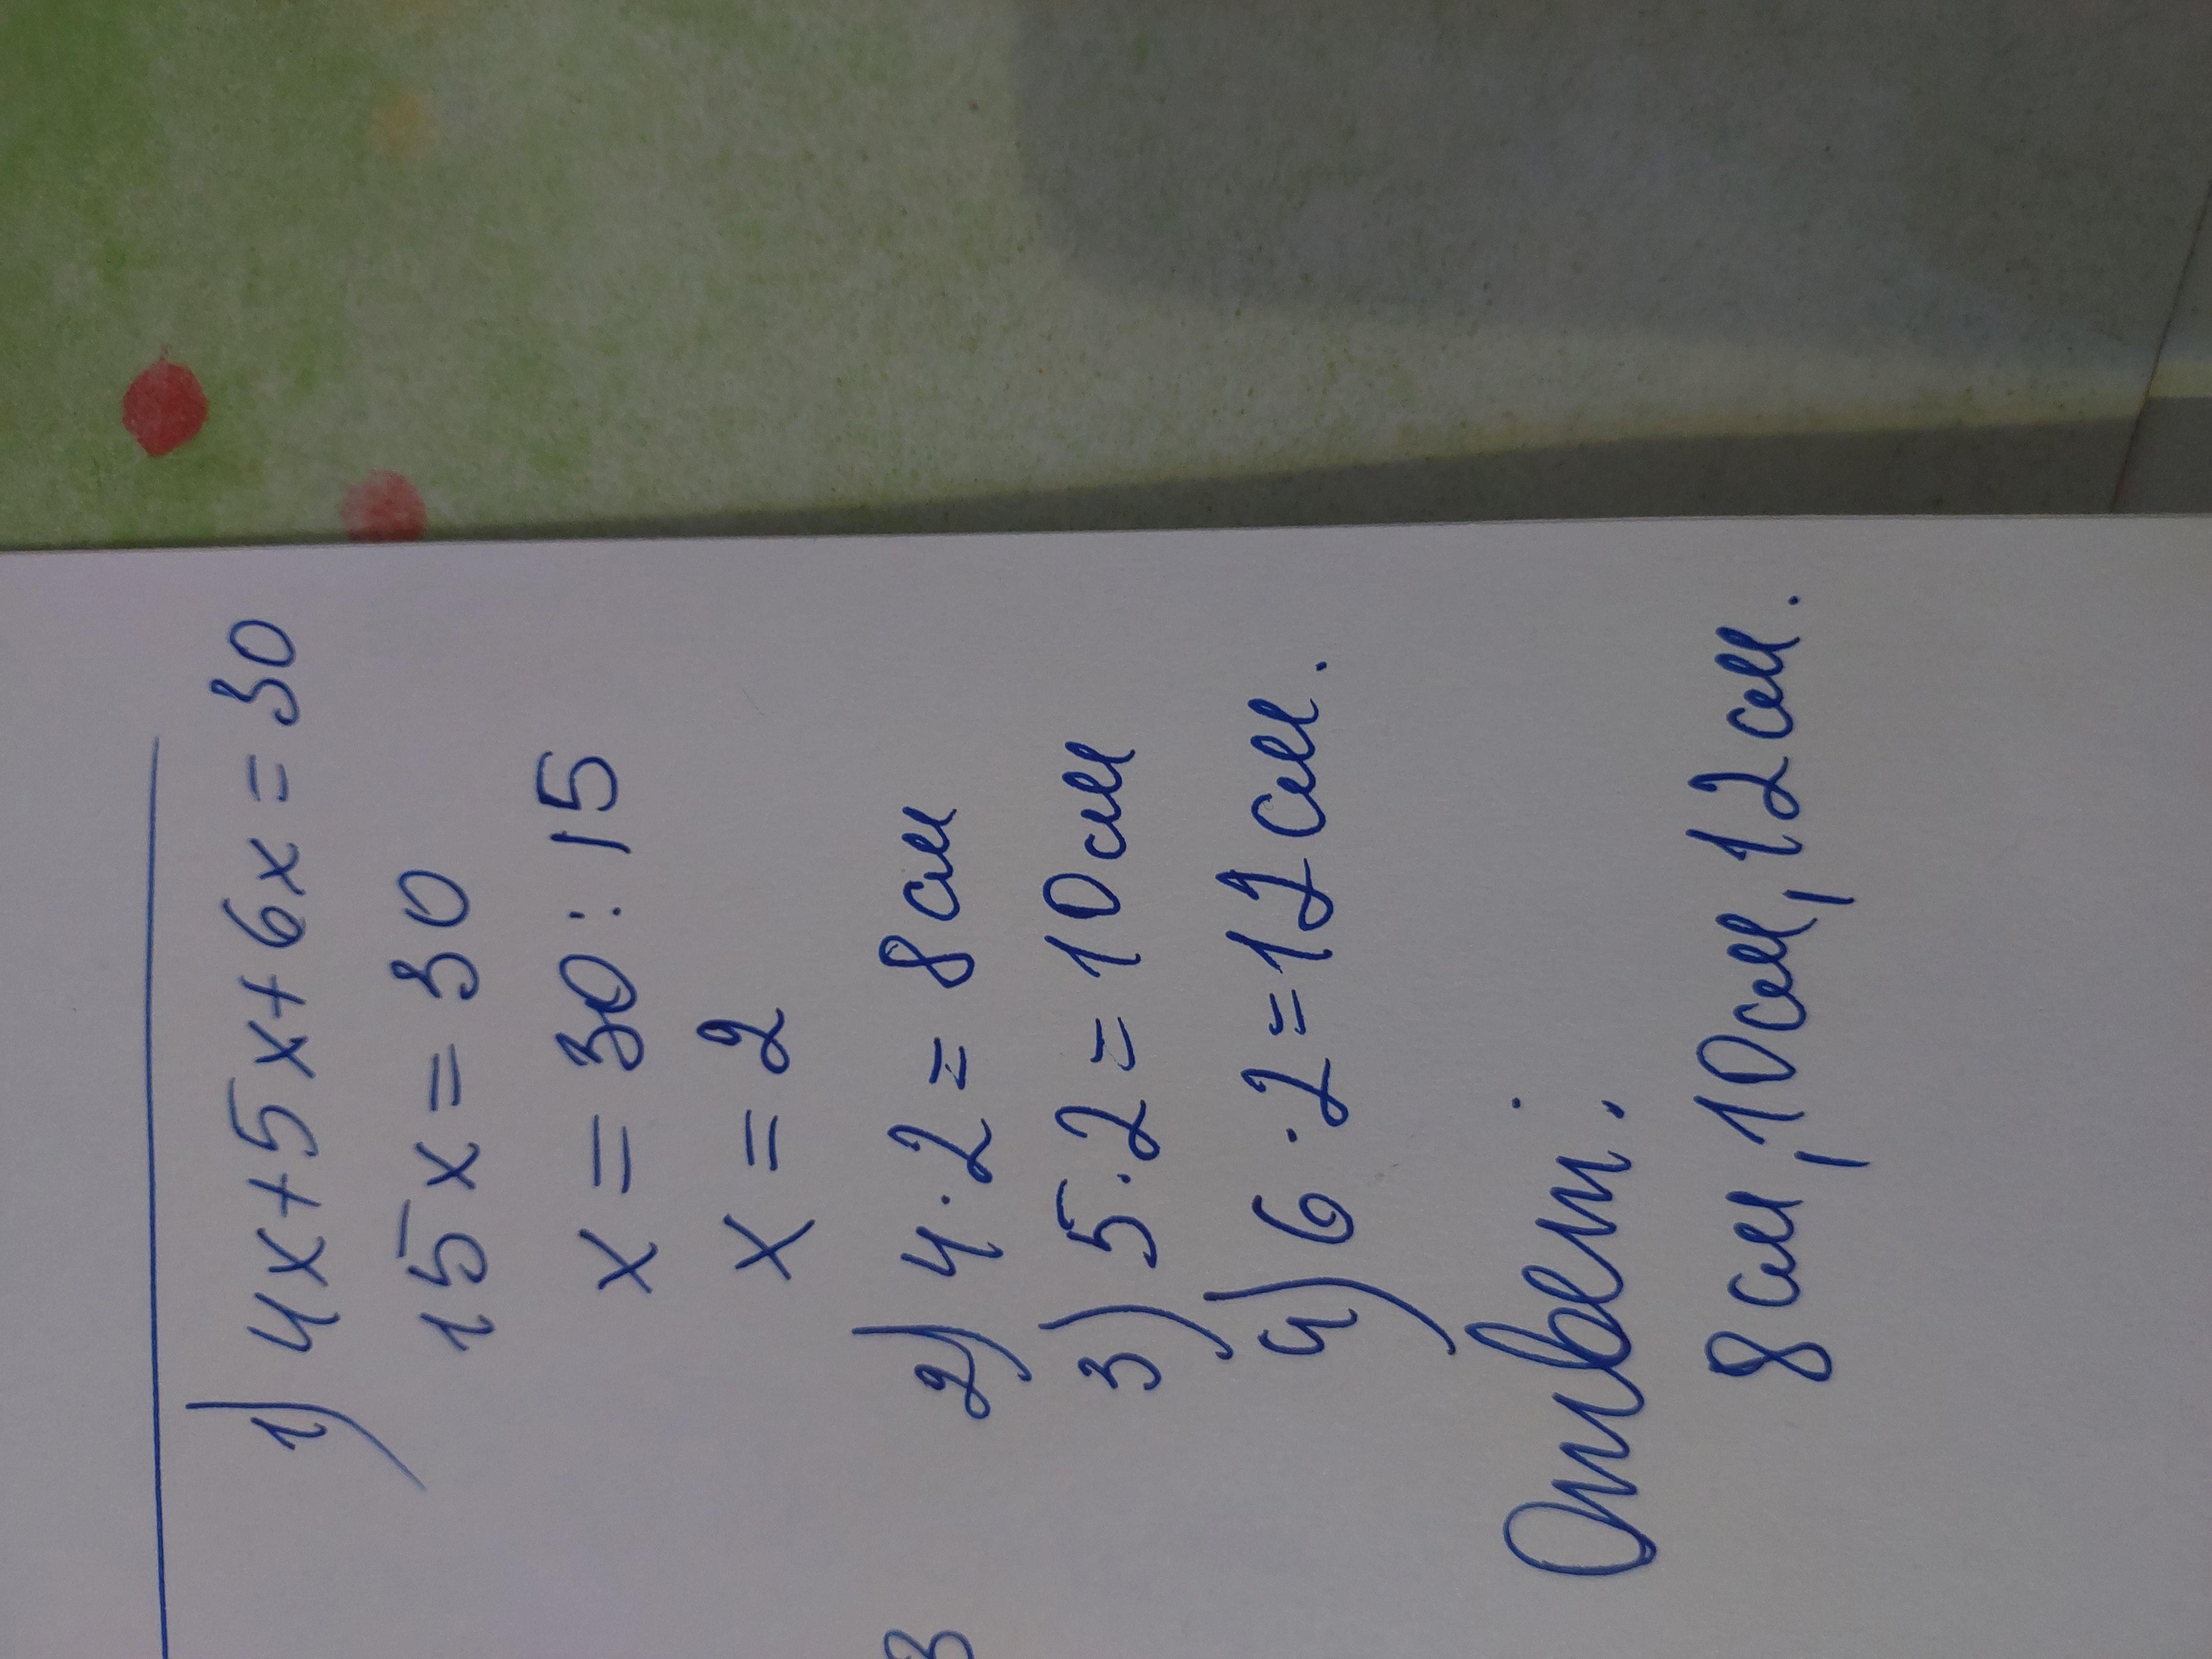 1) 4x+5x+6x=30
15x=30
x=30:15
x=2
2) 4·2=8см
3) 5·2=10см
4) 6·2=12см.
Ответ:
8см, 10см, 12см.
3